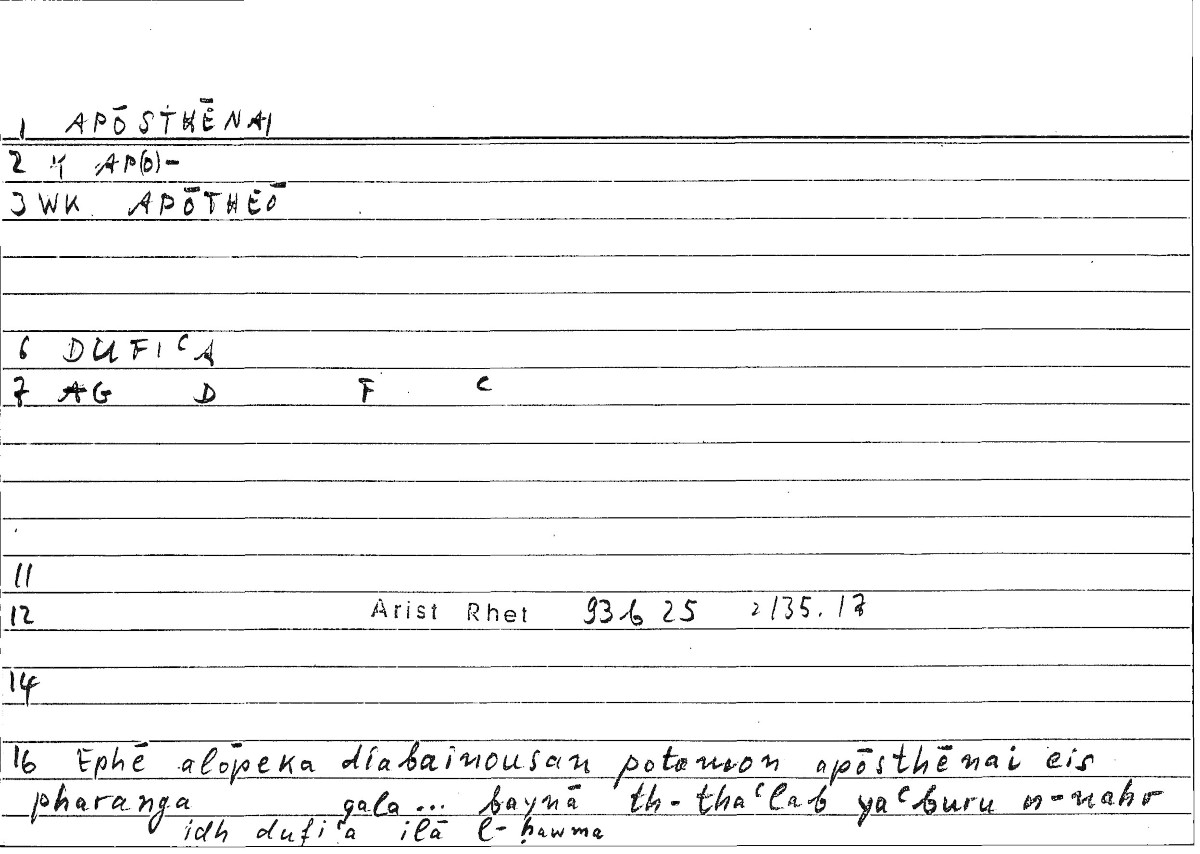 1 APŌSTHĒNAI
2 AP(O)-
3 WK APŌTHEŌ
6 DUFIʿA
7 AG D F ʿ
11
12 Arist Rhet 93b 25 135.17
14
16 Ephē alōpeka diabainousan potamon apōsthēnai eis
pharanga qāla ... baynā th-thaʿlab yaʿburu n-nahr
idh dufiʿa ilā l-ḥawma